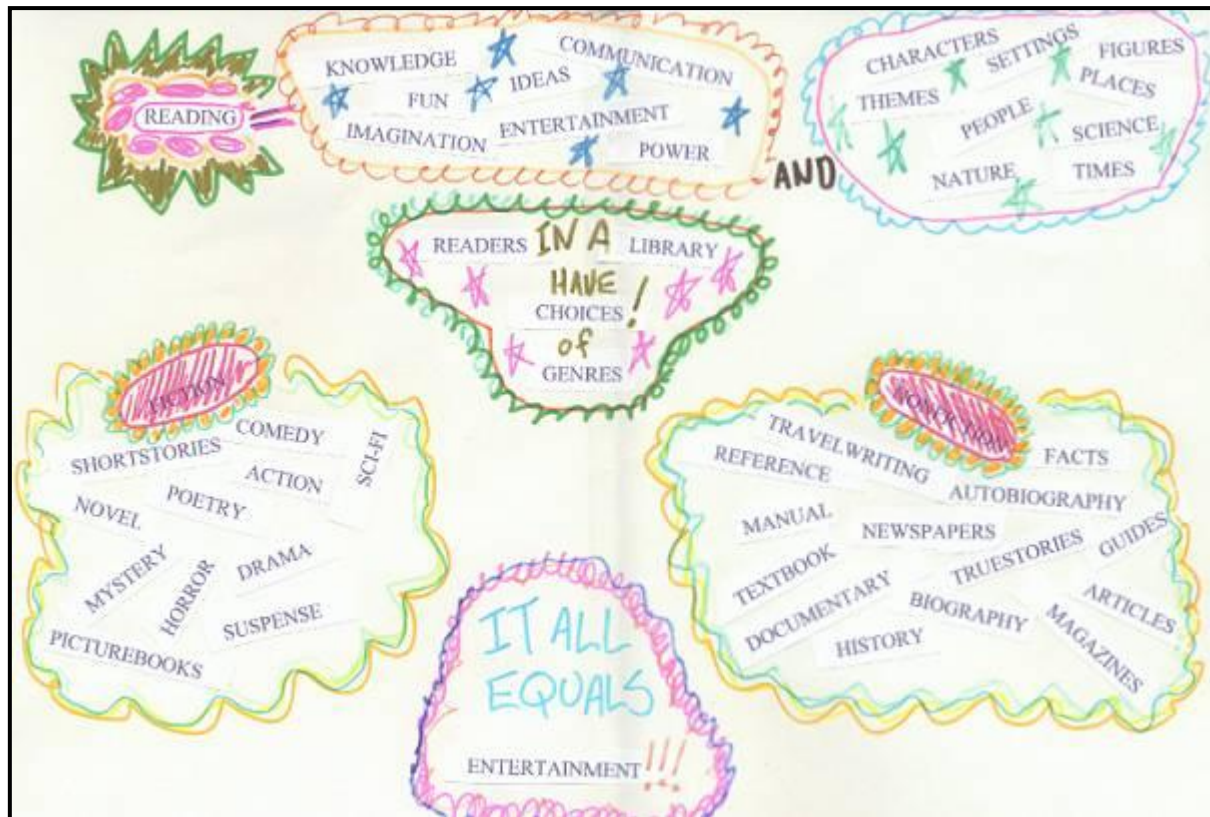 READING
=
KNOWLEDGE
COMMUNICATION
FUN
IDEAS
IMAGINATION
ENTERTAINMENT
POWER
AND
CHARACTERS
SETTINGS
FIGURES
THEMES
PLACES
PEOPLE
SCIENCE
NATURE
TIMES
READERS IN A LIBRARY
HAVE
CHOICES!
of
GENRES
FICTION
SHORTSTORIES
COMEDY
SCI-FI
ACTION
NOVEL
POETRY
MYSTERY
HORROR
DRAMA
SUSPENSE
PICTUREBOOKS
NONFICTION
TRAVELWRITING
FACTS
REFERENCE
AUTOBIOGRAPHY
MANUAL
NEWSPAPERS
GUIDES
TEXTBOOK
TRUESTORIES
DOCUMENTARY
BIOGRAPHY
ARTICLES
HISTORY
MAGAZINES
IT ALL
EQUALS
ENTERTAINMENT!!!